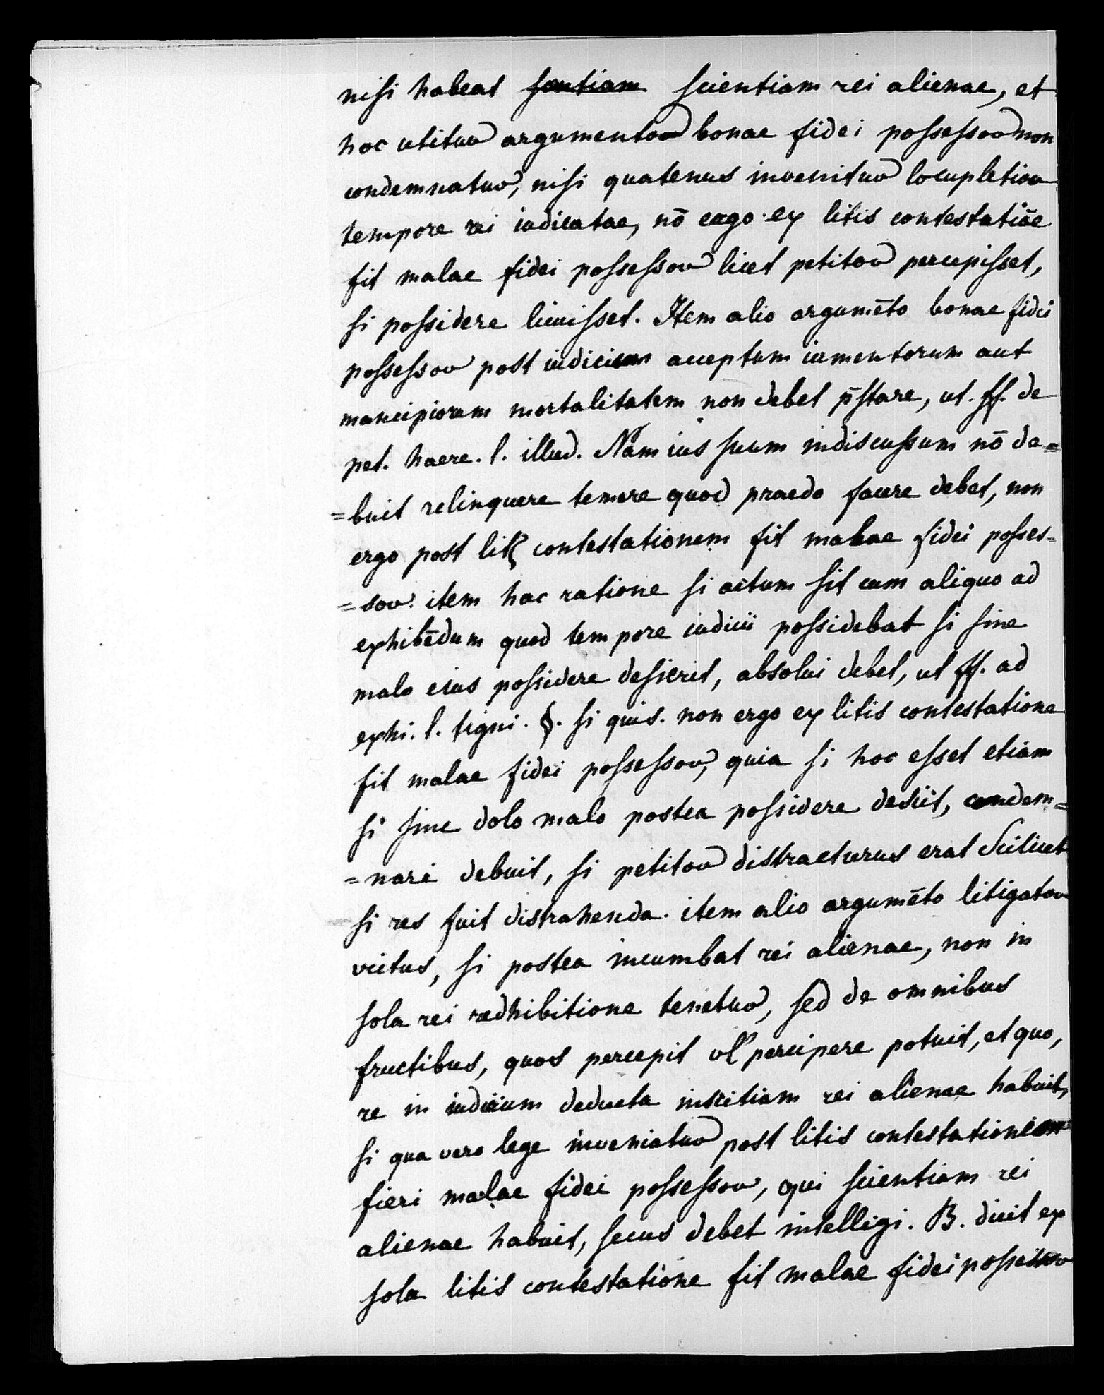 nisi habeat scientiam rei alienae, et
hoc utitur argumento bonae fidei possessor non
condemnatur, nisi quatenus invenitur locupletior
tempore rei iudicatae, nō ergo ex litis contestatiōe
fit malae fidei possessor licet petitor percepisset,
si possidere licuisset. Item alio argumēto bonae fidei
possessor post iudicium acceptum iumentorum aut
mancipiorum mortalitatem non debet p̄stare, ut. ff. de
pet. haere. l. illud. Nam ius suum indiscussum nō de=
=buit relinquere temere quod praedo facere debet, non
ergo post litis contestationem fit malae fidei posses=
=sor: item hac ratione si actum sit cum aliquo ad
exhibēdum quod tempore iudicii possidebat si sine
malo eius possidere desierit, absolui debet, ut ff. ad
exhi. l. tigni. §. si quis. non ergo ex litis contestatione
fit malae fidei possessor, quia si hoc esset etiam
si sine dolo malo postea possidere desiit, condem=
=nari debuit, si petitor distracturus erat scilicet
si res fuit distrahenda. item alio argumēto litigator
victus, si postea incumbat rei alienae, non in
sola rei redhibitione tenetur, sed de omnibus
fructibus, quos percepit vl' percipere potuit, et quo,
re in iudicium deducta inscitiam rei alienae habuit,
si qua vero lege inveniatur post litis contestationem
fieri malae fidei possessor, qui scientiam rei
alienae habuit, secus debet intelligi. B. dicit ex
sola litis contestatione fit malae fidei possessor